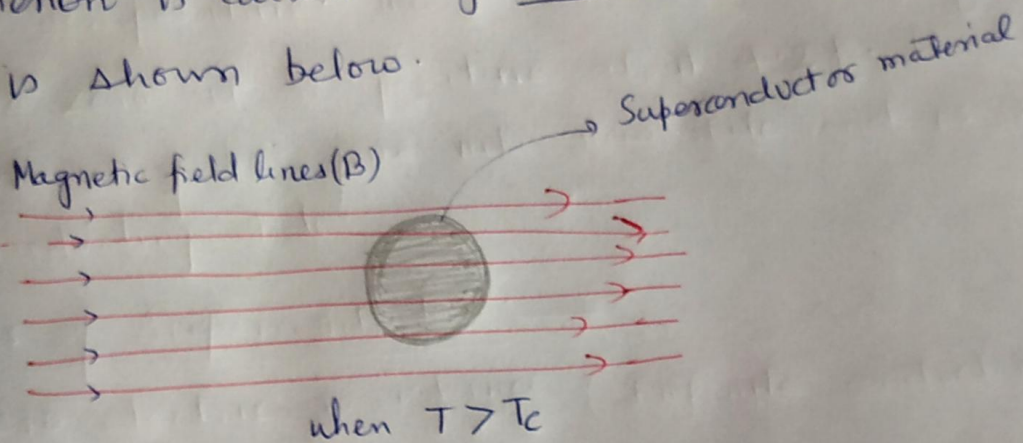 is shown below.
Superconductor material
Magnetic field lines(B)
when T > Tc